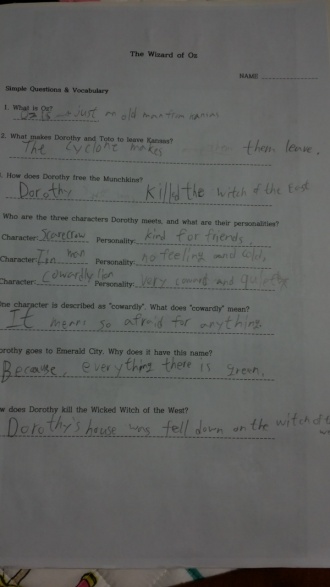 The Wizard of Oz
NAME
Simple Questions & Vocabulary
1. What is Oz?
Oz is just an old man from
2. What makes Dorothy and Toto to leave Kansas?
The cyclone makes them leave.
. How does Dorothy free the Munchkins?
Dorothy killd the witch of the East
Who are the three characters Dorothy meets, and what are their personalities?
Character: Scarecrow Personality: kind for friends,
Character: Tin man Personality: no feeling and cold,
Character: Cowardly lion Personality: very coward and
One character is described as "cowardly". What does "cowardly" mean?
It means so afraid for anything
orothy goes to Emerald City. Why does it have this name?
Because, everything there is green,
w does Dorothy kill the Wicked Witch of the West?
Dorothy's house was fell down on the witch of